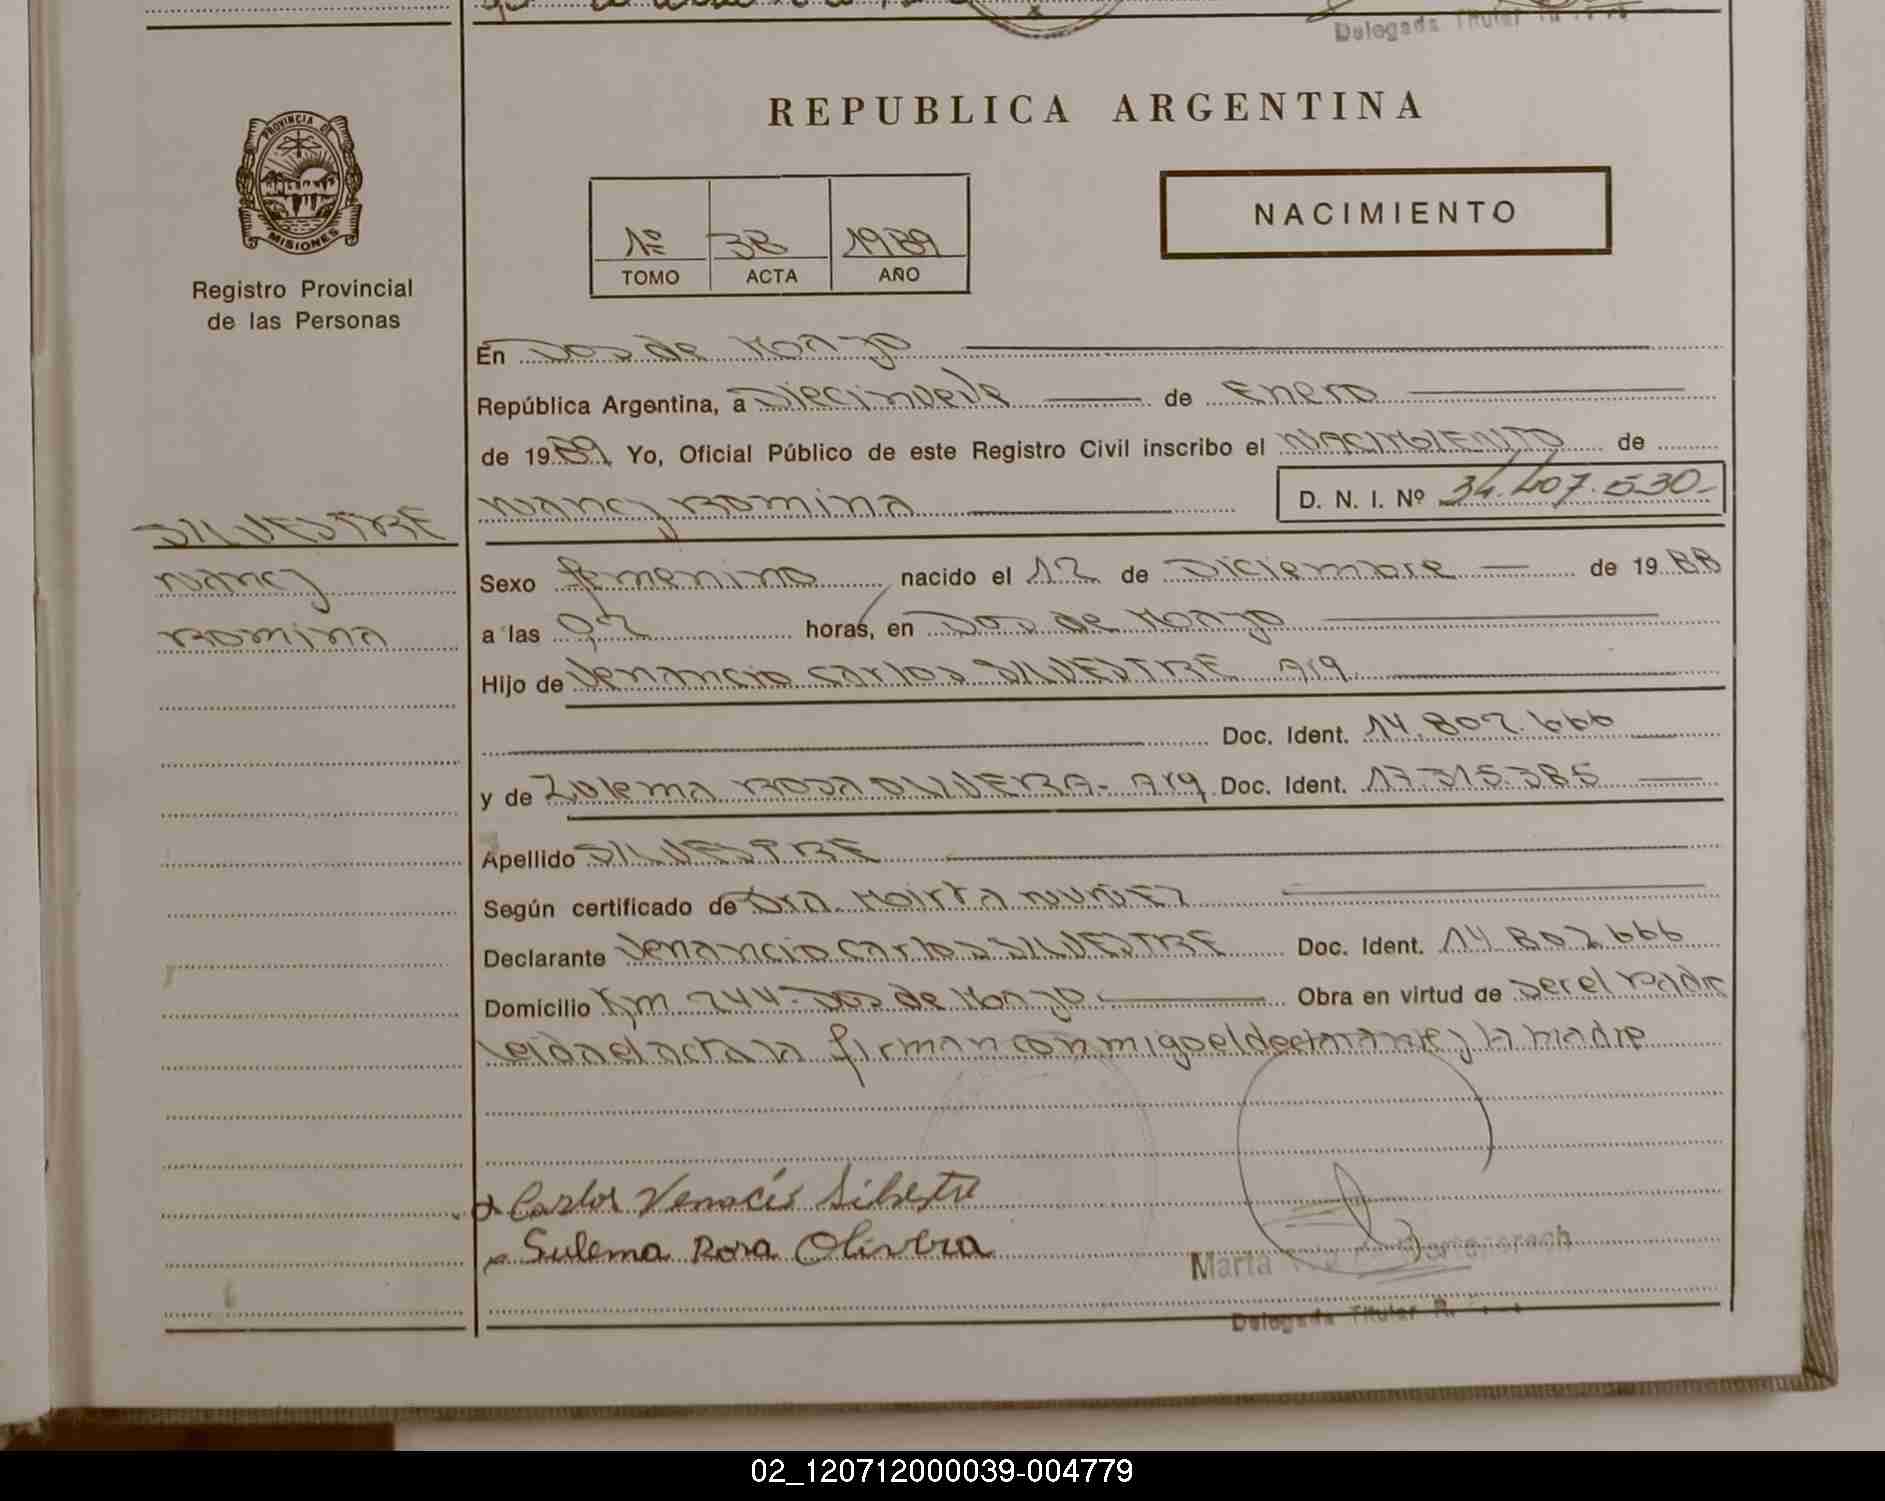 Delegada Titular
REPUBLICA ARGENTINA
PROVINCIA DE
MISIONES
Registro Provincial
de las Personas
NACIMIENTO
1º 38 1989
TOMO ACTA AÑO
En Dos de Mayo
República Argentina, a Diecinueve de Enero
de 1989 Yo, Oficial Público de este Registro Civil inscribo el NACIMIENTO de
Nancy Romina D. N. I. Nº 34.407.530-
SILVESTRE
Nancy
Romina
Sexo femenino nacido el 12 de Diciembre de 1988
a las 02 horas, en Dos de Mayo
Hijo de Venancio Carlos SILVESTRE Arg.
Doc. Ident. 14.802.666
y de Zulema Rosa OLIVERA- Arg Doc. Ident. 17.315.385
Apellido SILVESTRE
Según certificado de Dra. Mirta NUÑEZ
Declarante Venancio Carlos SILVESTRE Doc. Ident. 14.802.666
Domicilio Km 244- Dos de Mayo Obra en virtud de ser el padre
leida el acta la firman conmigo el declarante y la madre
Carlos Venacio Silbestre
Sulema Rosa Olivera
Marta
Delegada Titular R.
02_120712000039-004779